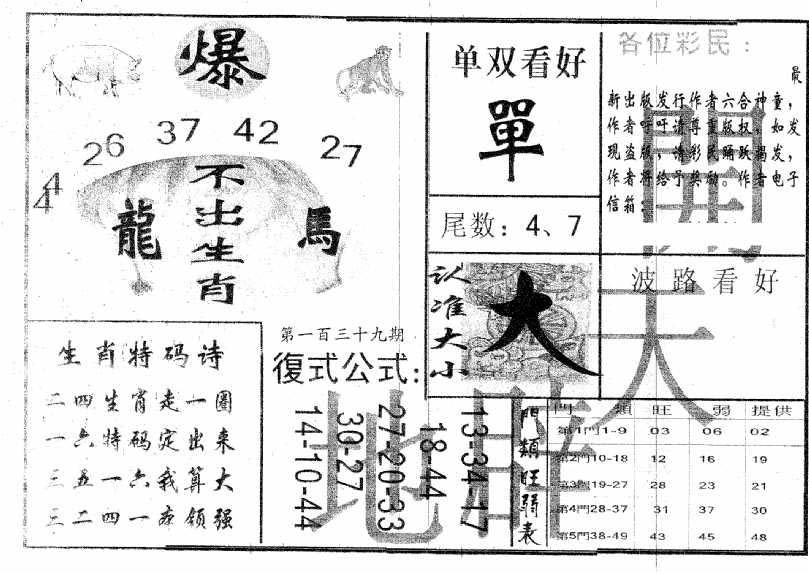 爆
26 37 42 27
44
不出生肖
龍 馬
生肖特码诗
二四生肖走一圖
一六特码定出来
三五一六我算大
三二四一在领强
第一百三十九期
復式公式：
13-34-17
18-44
27-20-33
30-27
14-10-44
单双看好
單
尾数：4、7
认准大小
大
各位彩民：
最
新出版发行作者六合神童，
作者吁吁请尊重版权，如发
现盗版，请彩民踊跃揭发，
作者将给予奖励。作者电子
信箱：
波路看好
開天地
門類旺弱表
門 類 旺 弱 提供
第1門1-9 03 06 02
第2門10-18 12 16 19
第3門19-27 28 23 21
第4門28-37 31 37 30
第5門38-49 43 45 48